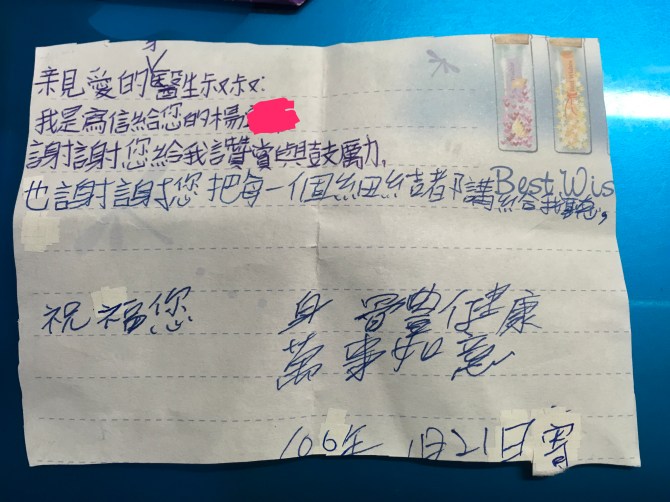 親愛的牙醫生叔叔:
我是寫信給您的楊
謝謝您給我讚賞與鼓勵,
Best Wis
也謝謝您把每一個細結都講給我聽,
祝福您
身體健康
萬事如意
106年 1月21日